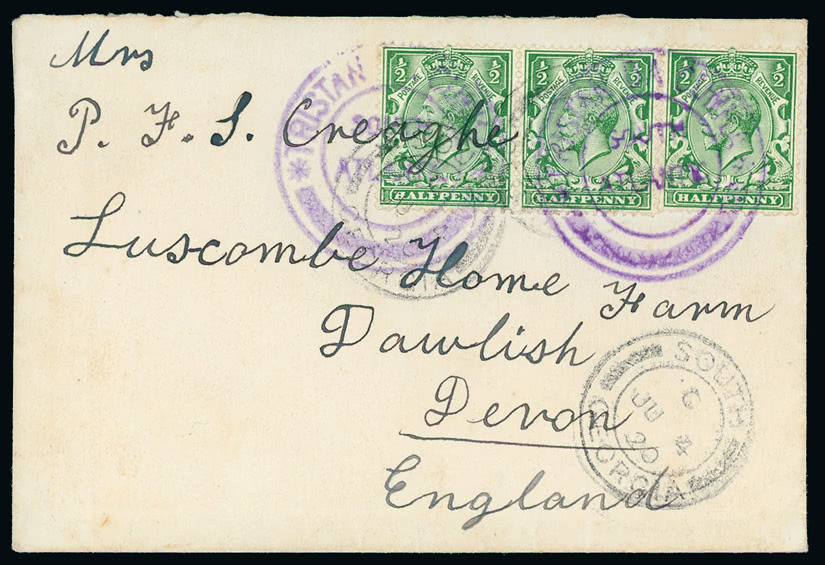 Mrs
P. F. S. Creaghe
Luscombe Home Farm
Dawlish
Devon
England
½ ½
POSTAGE REVENUE
HALFPENNY
½ ½
POSTAGE REVENUE
HALFPENNY
½ ½
POSTAGE REVENUE
HALFPENNY
*TRISTAN
SOUTH
GEORGIA
C
JU 4
20